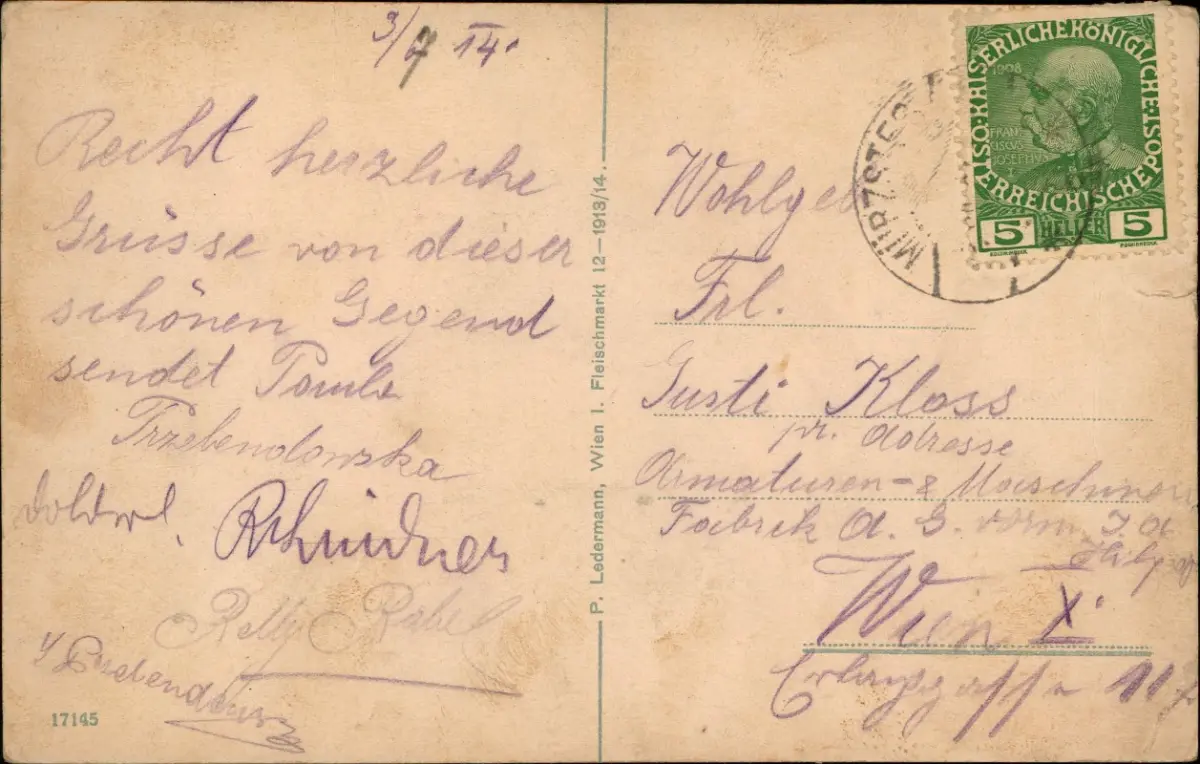 3/7 14.
Recht herzliche
Grüsse von dieser
schönen Gegend
sendet Paula
Trzebendowska
Relly Rabel
17145
P. Ledermann, Wien I. Fleischmarkt 12–1913/14.
KAISERLICHEKÖNIGLICHE
ÖSTERREICHISCHEPOST
1908
FRAN
CISCVS
JOSEPHVS
I
5 HELLER 5
MÜRZSTEG
Wohlgeb
Frl.
Gusti Kloss
pr. Adresse
Armaturen- & Maschinen
Fabrik A. G. vorm. J. A.
Hilp
Wien X.